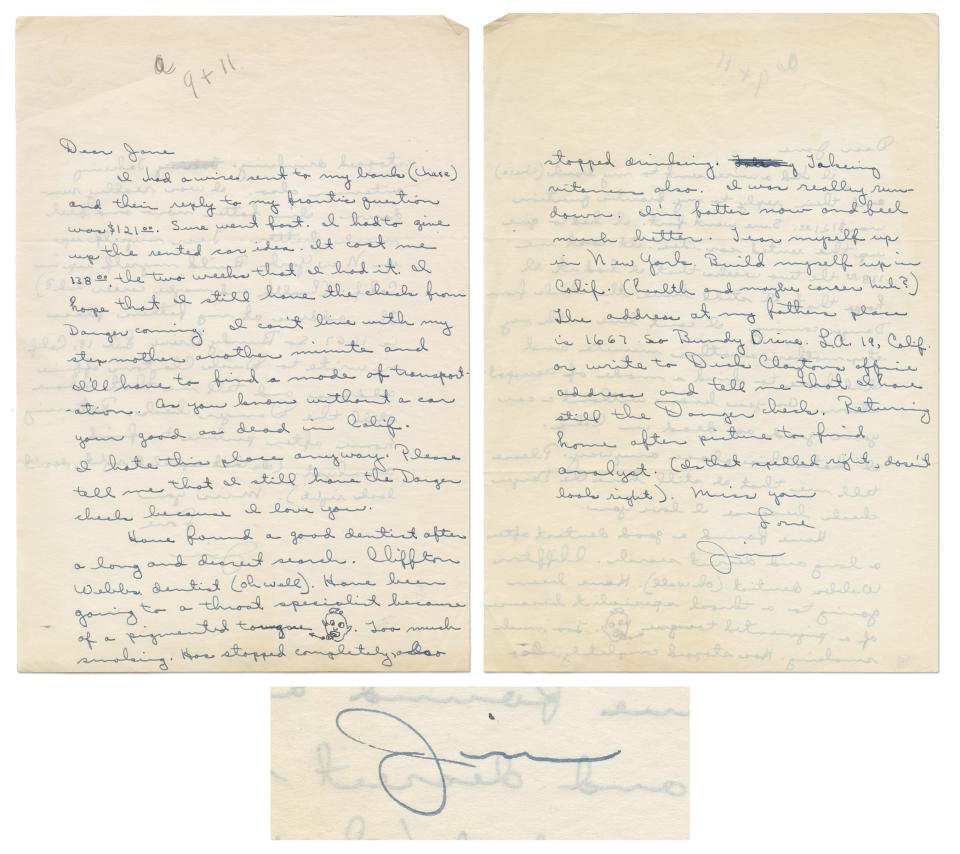 a 9 + 11
Dear Jane
I had a wire sent to my bank (Chase)
and their reply to my frantic question
was $121.00. Sure went fast. I had to give
up the rented car idea. It cost me
138.00 the two weeks that I had it. I
hope that I still have the check from
Danger coming. I can't live with my
stepmother another minute and
I'll have to find a mode of transport-
-ation. As you know without a car
your good as dead in Calif.
I hate this place anyway. Please
tell me that I still have the Danger
check because I love you.
Have found a good dentist after
a long and discreet search. Cliffton
Webbs dentist (oh well). Have been
going to a throat specialist because
of a pigmented tongue. Too much
smoking. Has stopped completely, also
stopped drinking. Takeing
vitamins also. I was really run-
down. I'm fatter now and feel
much better. Tear myself up
in New York. Build myself up in
Calif. (health and maybe career huh?)
The address at my fathers place
is 1667 So Bundy Drive. L.A 19, Calif.
or write to Dick Claytons office
address and tell me that I have
still the Danger check. Returning
home after picture to find
analyst. (Is that spelled right, dosen't
look right). Miss you
Love
Jim
Jim